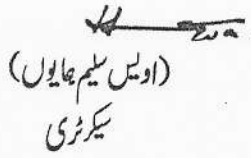 (اویس سلیم ہمایوں)
سیکرٹری